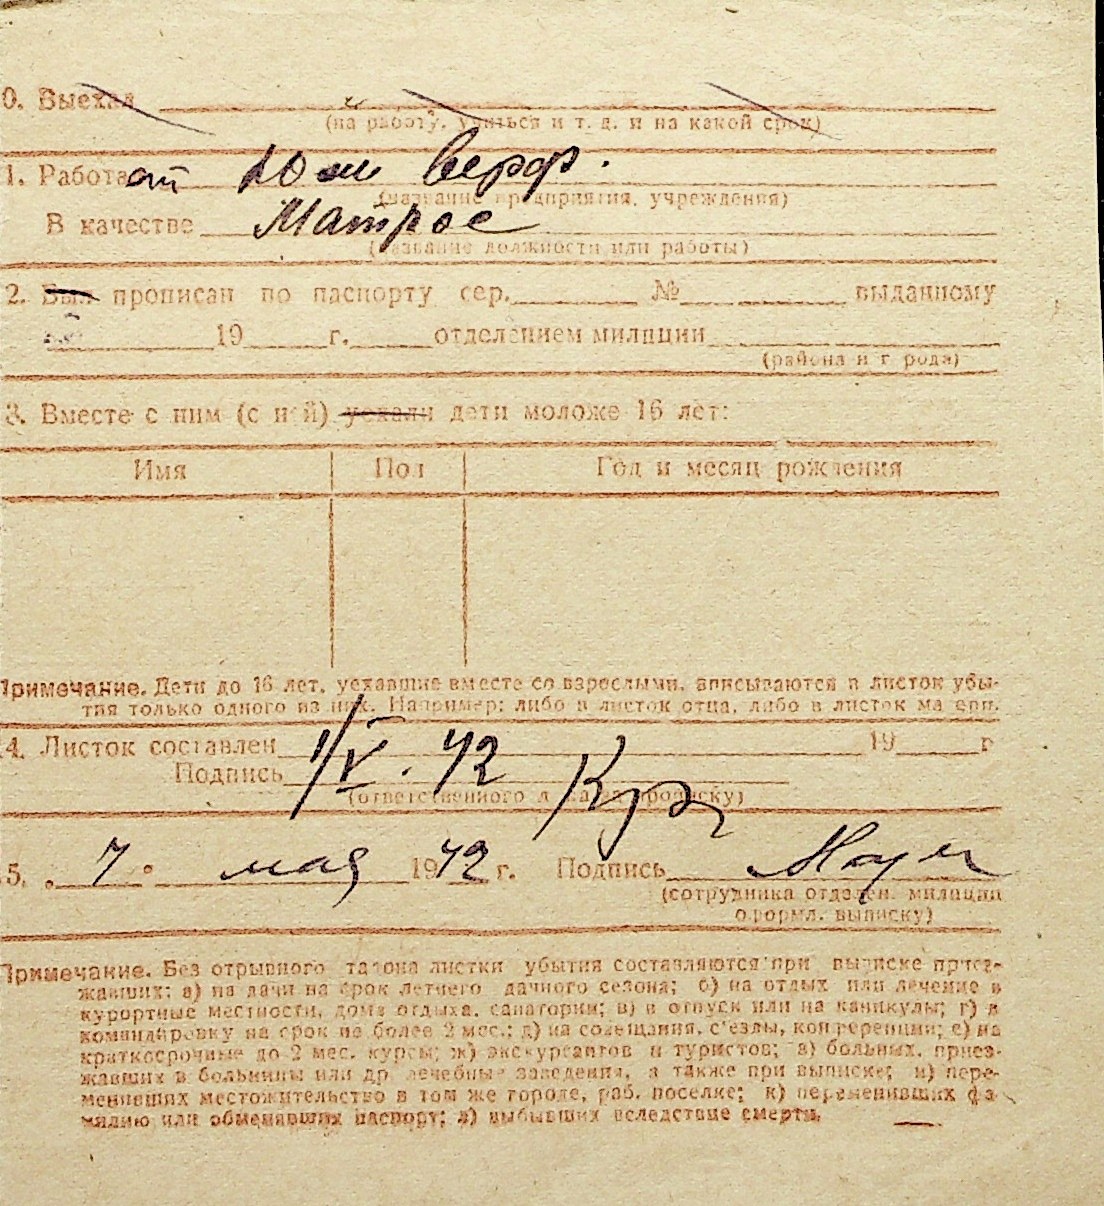 0. Выехал
(на работу, учиться и т. д. и на какой срок)
1. Работает верф.
(название предприятия, учреждения)
В качестве Матрос
(название должности или работы)
2. Был прописан по паспорту сер. № выданному
19 г. отделением милиции
(района и города)
3. Вместе с ним (с ней) уехали дети моложе 16 лет:
Имя Пол Год и месяц рождения
Примечание. Дети до 16 лет, уехавшие вместе со взрослыми, вписываются в листок убы-
тия только одного из них. Например: либо в листок отца, либо в листок матери.
4. Листок составлен 1/V. 42 19 г
Подпись
(ответственного за прописку)
5. „7“ мая 1942 г. Подпись
(сотрудника отделен. милиции
оформл. выписку)
Примечание. Без отрывного талона листки убытия составляются при выписке приез-
жавших: а) на дачи на срок летнего дачного сезона; б) на отдых или лечение в
курортные местности, дома отдыха, санатории; в) в отпуск или на каникулы; г) в
командировку на срок не более 2 мес.; д) на совещания, с'езды, конференции; е) на
краткосрочные до 2 мес. курсы; ж) экскурсантов и туристов; з) больных, приез-
жавших в больницы или др. лечебные заведения, а также при выписке; и) пере-
менивших местожительство в том же городе, раб. поселке; к) переменивших фа-
милию или обменявших паспорт; л) выбывших вследствие смерти.